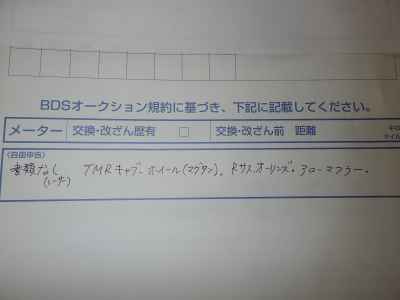 BDSオークション規約に基づき、下記に記載してください。
メーター 交換・改ざん歴有 □ 交換・改ざん前 距離
(自由申告)
書類なし TMRキャブ、ホイール(マグタン)、Rサス.オーリンズ、アローマフラー、
(レーサー)